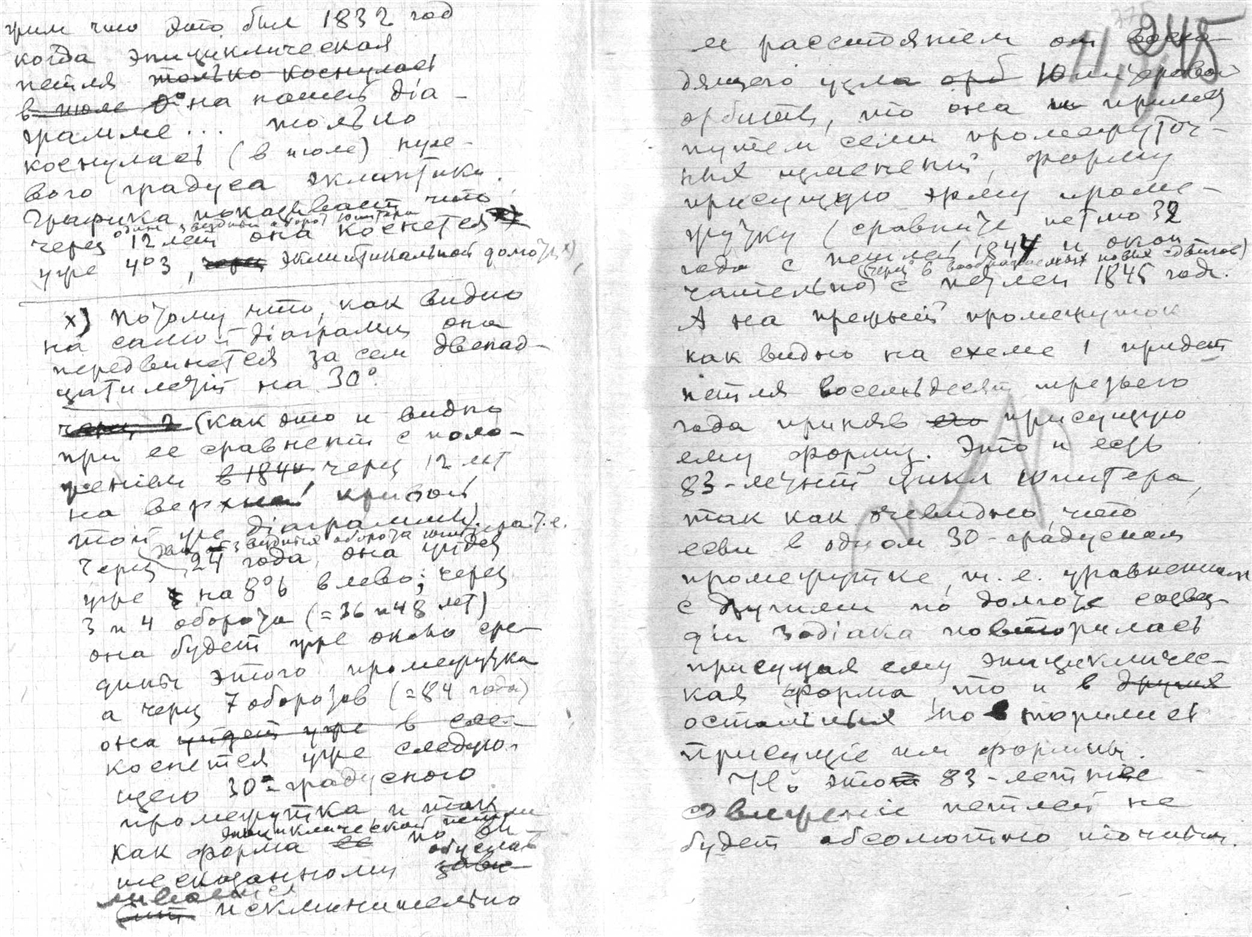 жим что это был 1832 год
когда эпициклическая
петля только коснулась
в июле 0° на нашей діа-
грамме... только
коснулась (в июле) нуле-
вого градуса эклиптики.
Графика показывает что
один звездный оборот Юпитера
через 12 лет она коснется х)
уже 4°3, через эклиптикальной долготы х),
х) Потому что, как видно
на самой діаграмме она
передвинется за семь двенад-
цатилетий на 30°.
через 2 (как это и видно
при ее сравнении с поло-
жением в 1844 через 12 лет
на верхней кривой
той же діаграммы).
Через 24 года, она уйдет
уже на 8°6 влево; через
3 и 4 оборота (=36 и 48 лет)
она будет уже около сре-
дины этого промежутка
а через 7 оборотов (=84 года)
она уйдет уже в сле-
коснется уже следую-
щего 30°-градусного
промежутка и так
эпициклической петли
как форма ее по вы-
шесказанному обуслав
ливается
исключительно
245
ее расстоянием от восхо-
дящего узла орб Юпитеровой
орбиты, то она примет
путем семи промежуточ-
ных изменений, форму
присущую этому проме-
жутку (сравните петлю 32
года с петлей 1844 и окон
чательно с петлей 1845 года.
А на прежний промежуток
как видно на схеме 1 придет
петля восемьдесят третьего
года приняв его присущую
ему форму. Это и есть
83-летний цикл Юпитера,
так как очевидно, что
если в одном 30-градусном
промежутке, т.е. уравненным
с другими по долготе созвез-
дии Зодіака повторилась
присущая ему эпицикличес-
кая форма, то и в другия
остальных повторились
присущіе им формы.
Но это 83-летнее
движеніе петлей не
будет абсолютно точным.